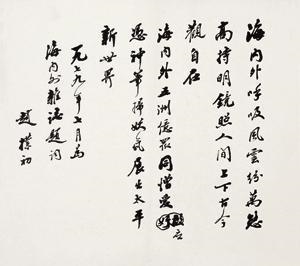 海内外呼吸風雲紛萬態
高持明鏡照人間上下古今
觀自在
海内外五洲億眾同憎愛
憑神筆掃妖氛展出太平
新世界
一九七九年七月為
海内外雜誌題詞
趙樸初